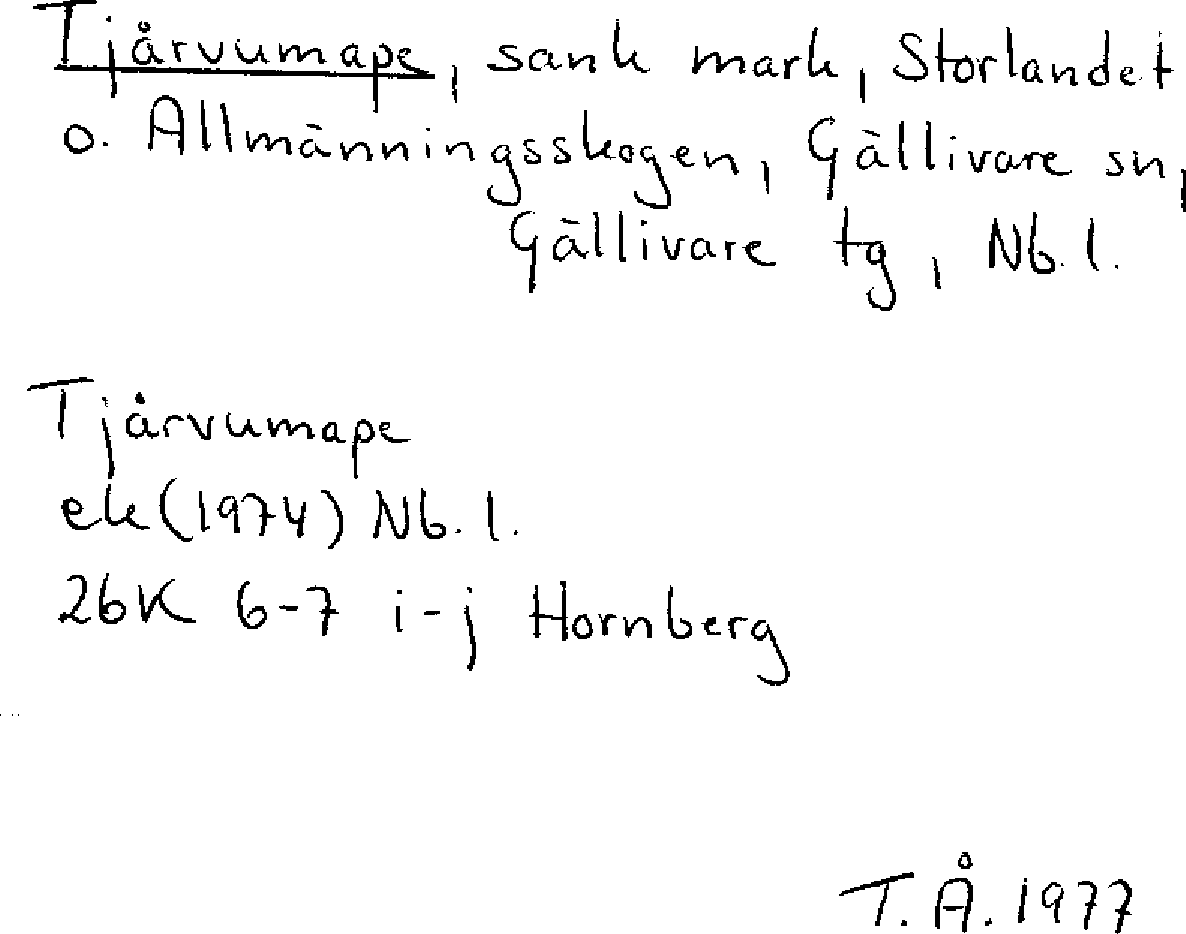 Tjårvumape, sank mark, Storlandet
o. Allmänningsskogen, Gällivare sn,
Gällivare tg, Nb. l.
Tjårvumape
ek (1974) Nb. l.
26K 6-7 i-j Hornberg
T. Å. 1977